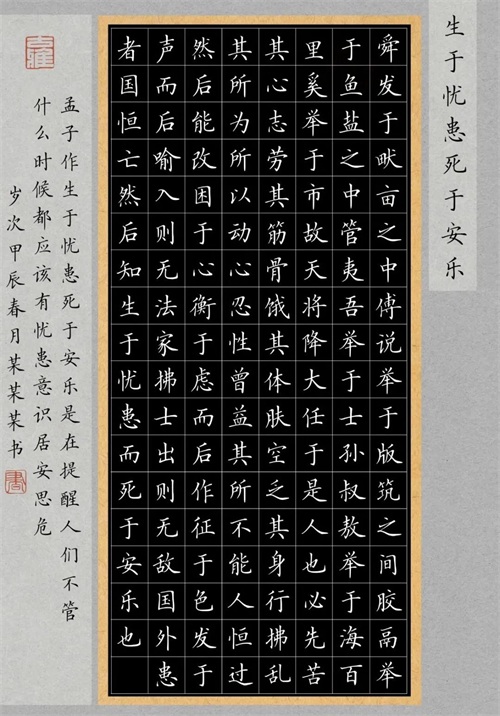 生于忧患死于安乐
舜发于畎亩之中傅说举于版筑之间胶鬲举
于鱼盐之中管夷吾举于士孙叔敖举于海百
里奚举于市故天将降大任于是人也必先苦
其心志劳其筋骨饿其体肤空乏其身行拂乱
其所为所以动心忍性曾益其所不能人恒过
然后能改困于心衡于虑而后作征于色发于
声而后喻入则无法家拂士出则无敌国外患
者国恒亡然后知生于忧患而死于安乐也
孟子作生于忧患死于安乐是在提醒人们不管
什么时候都应该有忧患意识居安思危
岁次甲辰春月某某某书
書